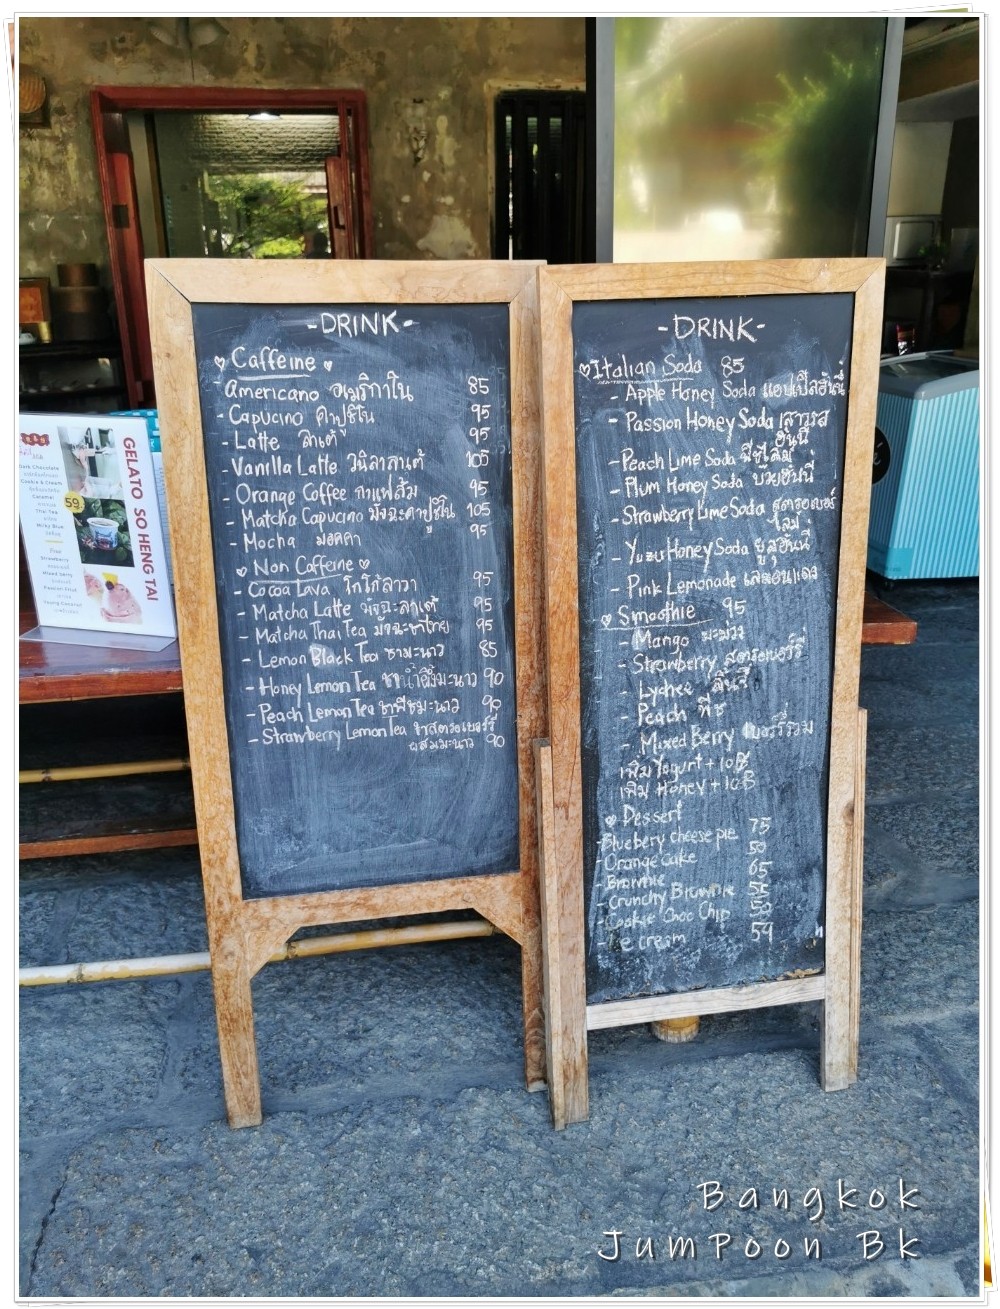 -DRINK-
Caffeine
- Americano อเมริกาโน 85
- Capucino คาปูชิโน 95
- Latte ลาเต้ 95
- Vanilla Latte วนิลาลาเต้ 105
- Orange Coffee กาแฟส้ม 95
- Matcha Capucino มัจฉะคาปูชิโน 105
- Mocha มอคคา 95
Non Caffeine
- Cocoa Lava โกโก้ลาวา 95
- Matcha Latte มัจฉะลาเต้ 95
- Matcha Thai Tea มัจฉะชาไทย 95
- Lemon Black Tea ชามะนาว 85
- Honey Lemon Tea ชาน้ำผึ้งมะนาว 90
- Peach Lemon Tea ชาพีชมะนาว 90
- Strawberry Lemon Tea ชาสตรอเบอร์รี่
ผสมมะนาว 90
-DRINK-
Italian Soda 85
- Apple Honey Soda แอปเปิ้ลฮันนี่
- Passion Honey Soda เสาวรส
ฮันนี่
- Peach Lime Soda พีชไลม์
- Plum Honey Soda บ๊วยฮันนี่
- Strawberry Lime Soda สตรอเบอร์
ไลม์
- Yuzu Honey Soda ยูสุฮันนี่
- Pink Lemonade เลมอนแดง
Smoothie 95
- Mango มะม่วง
- Strawberry สตรอเบอร์รี่
- Lychee ลิ้นจี่
- Peach พีช
- Mixed Berry เบอร์รี่รวม
เพิ่ม Yogurt + 10฿
เพิ่ม Honey + 10฿
Dessert
- Blueberry cheese pie 75
- Orange Cake 50
- Brownie 65
- Crunchy Brownie 55
- Cookie Choc Chip 50
- Ice cream 59
GELATO SO HENG TAI
Dark Chocolate
Cookie & Cream
Caramel
Thai Tea
Milky Blue
Strawberry
Mixed berry
Passion Fruit
Young Coconut
59.
Bangkok
JumPoon Bk